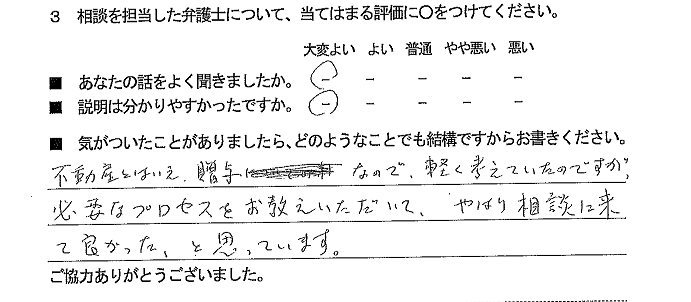 3 相談を担当した弁護士について、当てはまる評価に〇をつけてください。
大変よい よい 普通 やや悪い 悪い
■ あなたの話をよく聞きましたか。 - - - - -
■ 説明は分かりやすかったですか。 - - - - -
■ 気がついたことがありましたら、どのようなことでも結構ですからお書きください。
不動産とはいえ、贈与 なので、軽く考えていたのですが、
必要なプロセスをお教えいただいて、やはり相談に来
て良かった、と思っています。
ご協力ありがとうございました。